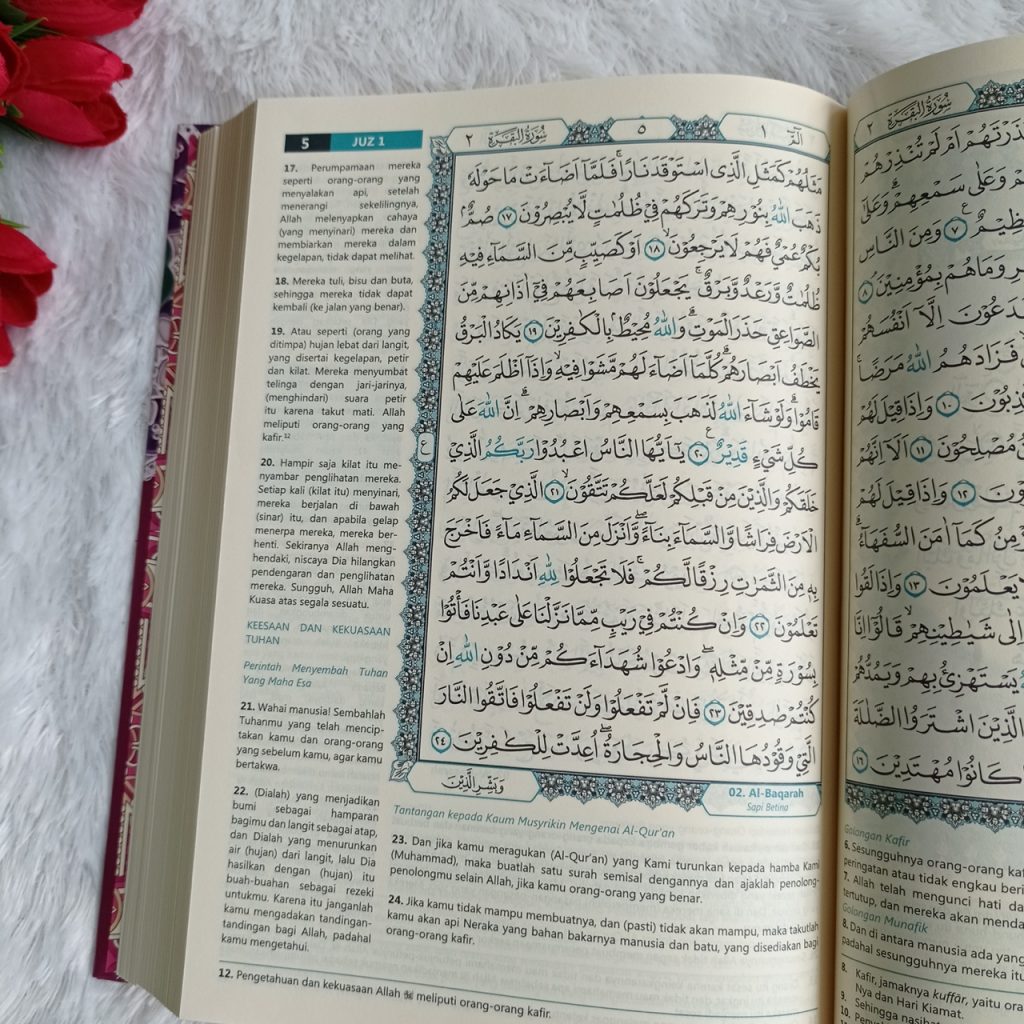 5 JUZ 1
17. Perumpamaan mereka
seperti orang-orang yang
menyalakan api, setelah
menerangi sekelilingnya,
Allah melenyapkan cahaya
(yang menyinari) mereka dan
membiarkan mereka dalam
kegelapan, tidak dapat melihat.
18. Mereka tuli, bisu dan buta,
sehingga mereka tidak dapat
kembali (ke jalan yang benar).
19. Atau seperti (orang yang
ditimpa) hujan lebat dari langit,
yang disertai kegelapan, petir
dan kilat. Mereka menyumbat
telinga dengan jari-jarinya,
(menghindari) suara petir
itu karena takut mati. Allah
meliputi orang-orang yang
kafir.¹²
20. Hampir saja kilat itu me-
nyambar penglihatan mereka.
Setiap kali (kilat itu) menyinari,
mereka berjalan di bawah
(sinar) itu, dan apabila gelap
menerpa mereka, mereka ber-
henti. Sekiranya Allah meng-
hendaki, niscaya Dia hilangkan
pendengaran dan penglihatan
mereka. Sungguh, Allah Maha
Kuasa atas segala sesuatu.
KEESAAN DAN KEKUASAAN
TUHAN
Perintah Menyembah Tuhan
Yang Maha Esa
21. Wahai manusia! Sembahlah
Tuhanmu yang telah mencip-
takan kamu dan orang-orang
yang sebelum kamu, agar kamu
bertakwa.
22. (Dialah) yang menjadikan
bumi sebagai hamparan
bagimu dan langit sebagai atap,
dan Dialah yang menurunkan
air (hujan) dari langit, lalu Dia
hasilkan dengan (hujan) itu
buah-buahan sebagai rezeki
untukmu. Karena itu janganlah
kamu mengadakan tandingan-
tandingan bagi Allah, padahal
kamu mengetahui.
الۤمّۤ ١ ٥ سُوْرَةُ الْبَقَرَةِ ٢
مَثَلُهُمْ كَمَثَلِ الَّذِى اسْتَوْقَدَ نَارًاۚ فَلَمَّآ اَضَاۤءَتْ مَا حَوْلَهٗ
ذَهَبَ اللّٰهُ بِنُوْرِهِمْ وَتَرَكَهُمْ فِيْ ظُلُمٰتٍ لَّا يُبْصِرُوْنَ ١٧ صُمٌّۢ
بُكْمٌ عُمْيٌ فَهُمْ لَا يَرْجِعُوْنَۙ ١٨ اَوْ كَصَيِّبٍ مِّنَ السَّمَاۤءِ فِيْهِ
ظُلُمٰتٌ وَّرَعْدٌ وَّبَرْقٌۚ يَجْعَلُوْنَ اَصَابِعَهُمْ فِيْٓ اٰذَانِهِمْ مِّنَ
الصَّوَاعِقِ حَذَرَ الْمَوْتِۗ وَاللّٰهُ مُحِيْطٌۢ بِالْكٰفِرِيْنَ ١٩ يَكَادُ الْبَرْقُ
يَخْطَفُ اَبْصَارَهُمْۗ كُلَّمَآ اَضَاۤءَ لَهُمْ مَّشَوْا فِيْهِۙ وَاِذَآ اَظْلَمَ عَلَيْهِمْ
قَامُوْاۗ وَلَوْ شَاۤءَ اللّٰهُ لَذَهَبَ بِسَمْعِهِمْ وَاَبْصَارِهِمْۗ اِنَّ اللّٰهَ عَلٰى
كُلِّ شَيْءٍ قَدِيْرٌࣖ ٢٠ يٰٓاَيُّهَا النَّاسُ اعْبُدُوْا رَبَّكُمُ الَّذِيْ
خَلَقَكُمْ وَالَّذِيْنَ مِنْ قَبْلِكُمْ لَعَلَّكُمْ تَتَّقُوْنَۙ ٢١ الَّذِيْ جَعَلَ لَكُمُ
الْاَرْضَ فِرَاشًا وَّالسَّمَاۤءَ بِنَاۤءًۖ وَّاَنْزَلَ مِنَ السَّمَاۤءِ مَاۤءً فَاَخْرَجَ
بِهٖ مِنَ الثَّمَرٰتِ رِزْقًا لَّكُمْۚ فَلَا تَجْعَلُوْا لِلّٰهِ اَنْدَادًا وَّاَنْتُمْ
تَعْلَمُوْنَ ٢٢ وَاِنْ كُنْتُمْ فِيْ رَيْبٍ مِّمَّا نَزَّلْنَا عَلٰى عَبْدِنَا فَأْتُوْا
بِسُوْرَةٍ مِّنْ مِّثْلِهٖۖ وَادْعُوْا شُهَدَاۤءَكُمْ مِّنْ دُوْنِ اللّٰهِ اِنْ
كُنْتُمْ صٰدِقِيْنَ ٢٣ فَاِنْ لَّمْ تَفْعَلُوْا وَلَنْ تَفْعَلُوْا فَاتَّقُوا النَّارَ
الَّتِيْ وَقُوْدُهَا النَّاسُ وَالْحِجَارَةُۖ اُعِدَّتْ لِلْكٰفِرِيْنَ ٢٤
ع
وَبَشِّرِ الَّذِيْنَ
02. Al-Baqarah
Sapi Betina
Tantangan kepada Kaum Musyrikin Mengenai Al-Qur'an
23. Dan jika kamu meragukan (Al-Qur'an) yang Kami turunkan kepada hamba Kami
(Muhammad), maka buatlah satu surah semisal dengannya dan ajaklah penolong-
penolongmu selain Allah, jika kamu orang-orang yang benar.
24. Jika kamu tidak mampu membuatnya, dan (pasti) tidak akan mampu, maka takutlah
kamu akan api Neraka yang bahan bakarnya manusia dan batu, yang disediakan bagi
orang-orang kafir.
12. Pengetahuan dan kekuasaan Allah ﷻ meliputi orang-orang kafir.
سُوْرَةُ الْبَقَرَةِ ٢
اَمْ لَمْ تُنْذِرْهُمْ
وَعَلٰى سَمْعِهِمْۗ وَعَلٰٓى
٧ وَمِنَ النَّاسِ
وَمَا هُمْ بِمُؤْمِنِيْنَۘ ٨
اِلَّآ اَنْفُسَهُمْ
فَزَادَهُمُ اللّٰهُ مَرَضًاۚ
١٠ وَاِذَا قِيْلَ لَهُمْ
مُصْلِحُوْنَ ١١ اَلَآ اِنَّهُمْ
١٢ وَاِذَا قِيْلَ لَهُمْ
كَمَآ اٰمَنَ السُّفَهَاۤءُۗ
يَعْلَمُوْنَ ١٣ وَاِذَا لَقُوا
اِلٰى شَيٰطِيْنِهِمْۙ قَالُوْٓا اِنَّا
يَسْتَهْزِئُ بِهِمْ وَيَمُدُّهُمْ
الَّذِيْنَ اشْتَرَوُا الضَّلٰلَةَ
كَانُوْا مُهْتَدِيْنَ ١٦
Golongan Kafir
6. Sesungguhnya orang-orang
peringatan atau tidak engkau
7. Allah telah mengunci hati
tertutup, dan mereka akan
Golongan Munafik
8. Dan di antara manusia ada yang
padahal sesungguhnya mereka
8. Kafir, jamaknya kuffār, yaitu
Nya dan Hari Kiamat.
9. Sehingga
10.